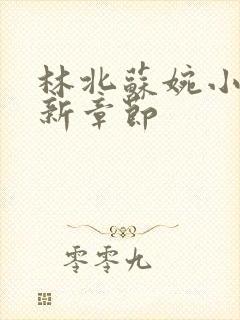 林北蘇婉小
新章節
零零九